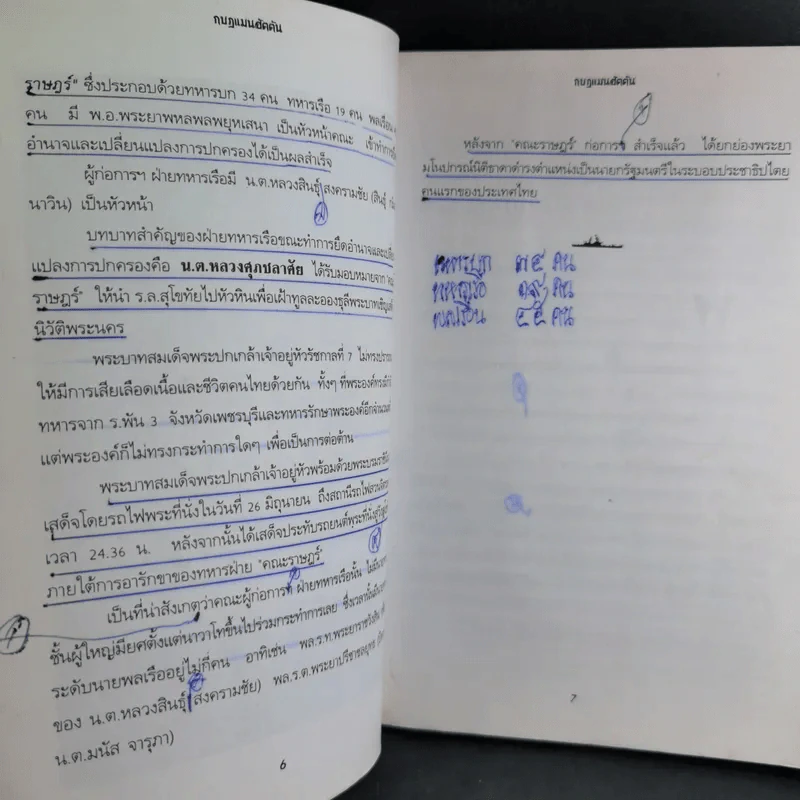 กบฏแมนฮัตตัน
ราษฎร์" ซึ่งประกอบด้วยทหารบก 34 คน ทหารเรือ 19 คน พลเรือน
คน มี พ.อ.พระยาพหลพลพยุหเสนา เป็นหัวหน้าคณะ เข้าทำการ
อำนาจและเปลี่ยนแปลงการปกครองได้เป็นผลสำเร็จ
ผู้ก่อการฯ ฝ่ายทหารเรือมี น.ต.หลวงสินธุ์สงครามชัย (สินธุ์
นาวิน) เป็นหัวหน้า
บทบาทสำคัญของฝ่ายทหารเรือขณะทำการยึดอำนาจและ
แปลงการปกครองคือ น.ต.หลวงศุภชลาศัย ได้รับมอบหมายจาก
ราษฎร์" ให้นำ ร.ล.สุโขทัยไปหัวหินเพื่อเฝ้าทูลละอองธุลีพระบาท
นิวัติพระนคร
พระบาทสมเด็จพระปกเกล้าเจ้าอยู่หัวรัชกาลที่ 7 ไม่ทรง
ให้มีการเสียเลือดเนื้อและชีวิตคนไทยด้วยกัน ทั้งๆ ที่พระองค์
ทหารจาก ร.พัน 3 จังหวัดเพชรบุรีและทหารรักษาพระองค์อีก
แต่พระองค์ก็ไม่ทรงกระทำการใดๆ เพื่อเป็นการต่อต้าน
พระบาทสมเด็จพระปกเกล้าเจ้าอยู่หัวพร้อมด้วย
เสด็จโดยรถไฟพระที่นั่งในวันที่ 26 มิถุนายน ถึงสถานีรถไฟ
เวลา 24.36 น. หลังจากนั้นได้เสด็จประทับรถยนต์พระที่นั่ง
ภายใต้การอารักขาของทหารฝ่าย "คณะราษฎร์"
เป็นที่น่าสังเกตุว่าคณะผู้ก่อการ ฝ่ายทหารเรือนั้น
ชั้นผู้ใหญ่มียศตั้งแต่นาวาโทขึ้นไปร่วมกระทำการเลย ซึ่งเวลานั้น
ระดับนายพลเรืออยู่ไม่กี่คน อาทิเช่น พล.ร.ท.พระยาราชวังสัน
ของ น.ต.หลวงสินธุ์ สงครามชัย) พล.ร.ต.พระยาปรีชาชลยุทธ
น.ต.มนัส จารุภา)
6
กบฏแมนฮัตตัน
หลังจาก "คณะราษฎร์" ก่อการ สำเร็จแล้ว ได้ยกย่องพระยา
มโนปกรณ์นิติธาดาดำรงตำแหน่งเป็นนายกรัฐมนตรีในระบอบประชาธิปไตย
คนแรกของประเทศไทย
ทหารบก ๓๔ คน
ทหารเรือ ๑๙ คน
พลเรือน ๔๕ คน
7